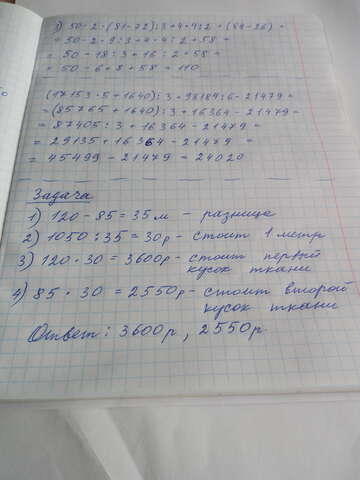 3) 50-2·(81-72):3+4·4:2+(84-26)=
= 50-2·9:3+4·4:2+58=
= 50-18:3+16:2+58=
= 50-6+8+58=110
(17153·5+1640):3+98184:6-21479=
=(85765+1640):3+16364-21479=
= 87405:3+16364-21479=
= 29135+16364-21479=
= 45499-21479=24020
Задача
1) 120-85=35м - разница
2) 1050:35=30р-стоит 1 метр
3) 120·30=3600р-стоит первый
кусок ткани
4) 85·30=2550р-стоит второй
кусок ткани
Ответ: 3600р, 2550р